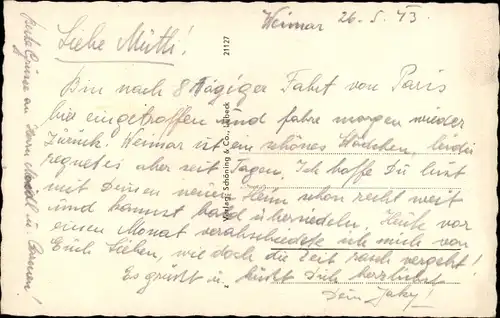 Weimar 26.5.43.
Liebe Mutti!
Bin nach 8 tägiger Fahrt von Paris
hier eingetroffen und fahre morgen wieder
zurück. Weimar ist ein schönes Städtchen, leider
regnet es aber seit Tagen. Ich hoffe Du bist
mit Deinem neuen Heim schon recht weit
und kannst bald übersiedeln. Heute vor
einem Monat verabschiedete ich mich von
Euch Lieben, wie doch die Zeit rasch vergeht!
Es grüßt u. küßt Dich herzlichst
Dein
Beste Grüsse an Herrn u.
21127
Verlag: Schöning & Co., Lübeck